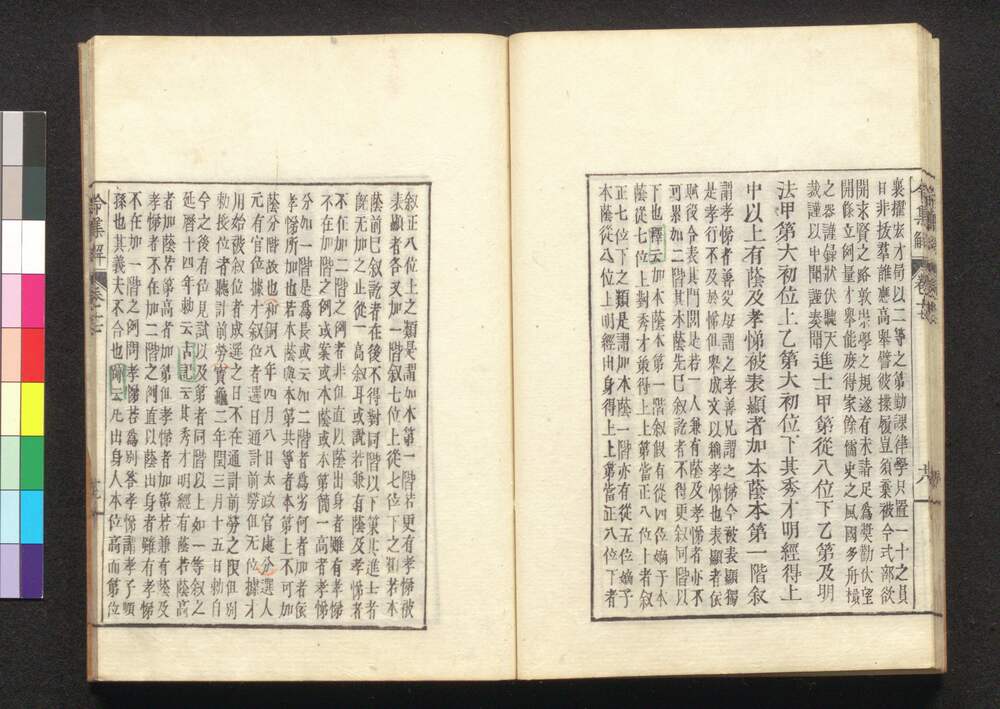 襄擢宏才局以二等之第勤課律學只置一十之員
目非拔羣誰應高擧譬彼撲履豈須棄被今式部欲
開求賢之略敦崇學之規遂有未請足為奬勸伏望
開條立例量才擧能庶得家餘儒史之風國多舟檝
之器謹録狀伏聽天
裁謹以申聞謹奏聞
進士甲第從八位下乙第及明
法甲第大初位上乙第大初位下其秀才明經得上
中以上有蔭及孝悌被表顯者加本蔭本第一階敘
謂孝悌者善父母謂之孝善兄謂之悌今被表顯獨
是孝行不及於悌但擧成文以稱孝悌也表顯者依
賦役令表其門閭是若一人兼有蔭及孝悌者亦不
可累加二階其本蔭先已敘訖者不得更敘同階以
下也釋云加本蔭第一階敘假有從四位嫡子本
蔭從七位上對秀才乗得上上第當正八位上者敘
正七位下之類是謂加本蔭一階亦有從五位嫡子
本蔭從八位上明經出身得上上第當正八位下者
敘正八位上之類是謂加本第一階若更有孝悌被
表顯者各又加一階敘七位上從七位下之類若本
蔭前已敘訖者在後不得對同階以下業其進士者
既無加之止從一高敘耳或說若兼有蔭及孝悌者
不在加二階之例者非但直以蔭出身者雖有孝悌
不在加階之例或案或本蔭或本第簡一高者孝悌
分如一階是爲長或云如二階者爲劣何者加者依
孝悌所加也若本蔭與本第共等者本第上不可加
蔭分階故也和銅八年四月八日太政官處分選人
元有官位據才敘位者選日通計前勞但无位據才
用始被敘位者成選之日不在通計前勞之限但別
勅長位者聽計前勞寶龜二年閏三月十五日勅自
今之後有位見試以及第者同階以上加一等敘之
延曆十四年勅云古記云其秀才明經有蔭若蔭高
者加蔭若第高者加第但孝悌者加第若兼有蔭及
孝悌者不在加二階之例直以蔭出身者雖有孝悌
不在加一階之例問孝悌若爲別答孝悌謂孝子順
孫也其義夫不合也師云凡出身人本位高而第位
令集解